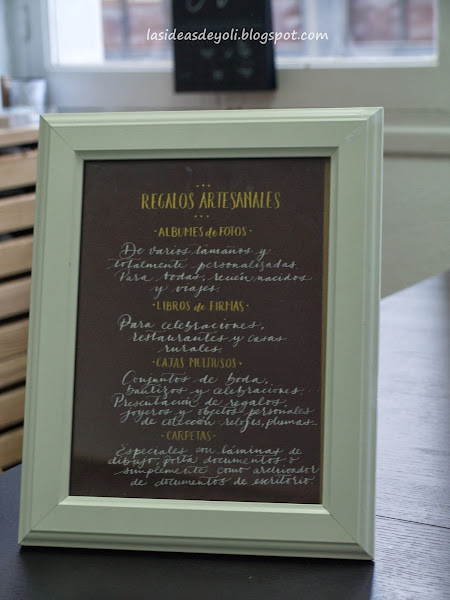 lasideasdeyoli.blogspot.com
REGALOS ARTESANALES
·ALBUMES de FOTOS·
De varios tamaños y
totalmente personalizadas.
Para bodas, recién nacidos
y viajes.
·LIBROS de FIRMAS·
Para celebraciones,
restaurantes y casas
rurales.
·CAJAS MULTIUSOS·
Conjuntos de boda,
bautizos y celebraciones.
Presentación de regalos,
joyeros y objetos personales
de colección relojes, plumas.
·CARPETAS·
Especiales con láminas de
dibujo, porta documentos o
simplemente como archivador
de documentos de escritorio.